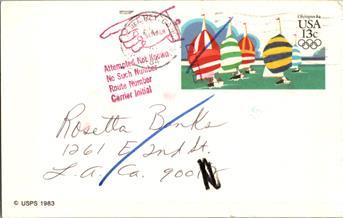 Olympics 84
USA
13c
Attempted Not Known
No Such Number
Route Number
Carrier Initial
Rosetta Banks
1261 E 2nd St.
L.A. Ca. 900
N
© USPS 1983